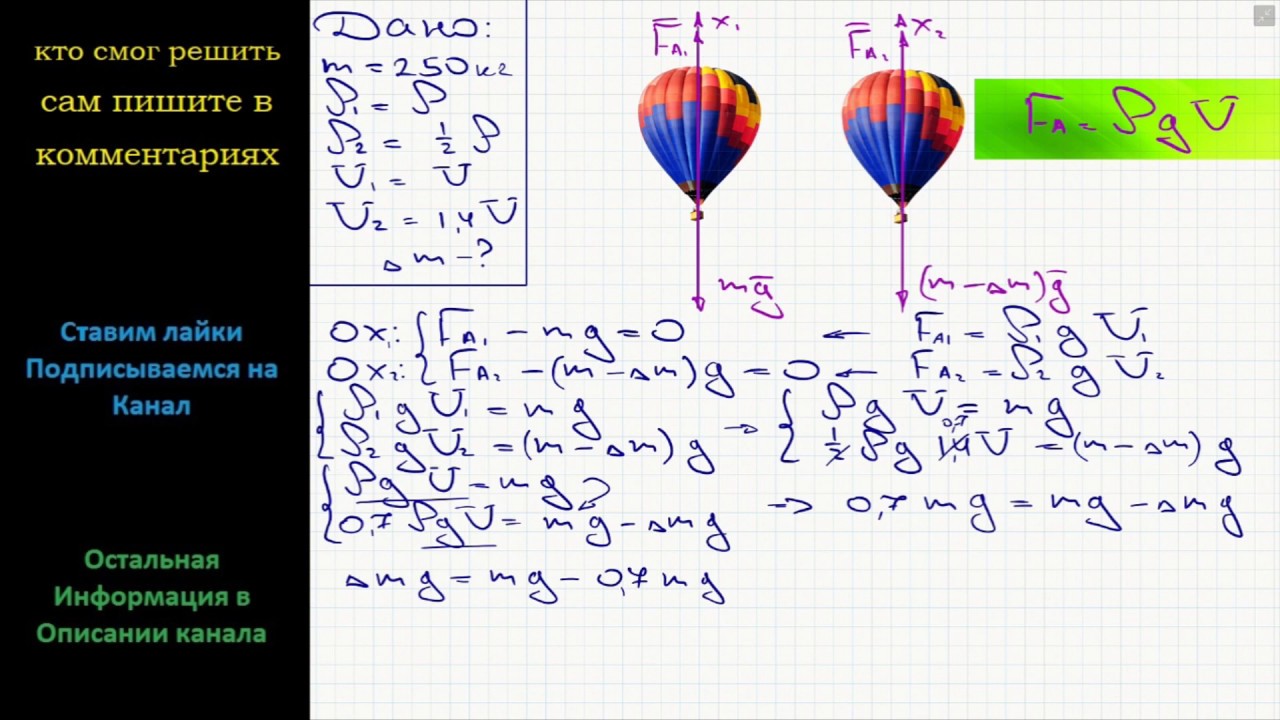 кто смог решить
сам пишите в
комментариях
Ставим лайки
Подписываемся на
Канал
Остальная
Информация в
Описании канала
Дано:
m = 250 кг
ρ₁ = ρ
ρ₂ = ½ ρ
V₁ = V
V₂ = 1,4 V
Δm - ?
F̄A₁ x₁
F̄A₂ x₂
FA = ρgV
mḡ
(m - Δm)ḡ
Ox₁: { FA₁ - mg = 0 ← FA₁ = ρ₁ g V₁
Ox₂: { FA₂ - (m - Δm)g = 0 ← FA₂ = ρ₂ g V₂
{ ρ₁ g V₁ = mg → { ρg V = mg
ρ₂ g V₂ = (m - Δm) g ½ ρg 1,4 0,7 V = (m - Δm) g
{ ρg V = mg
0,7 ρg V = mg - Δmg → 0,7 mg = mg - Δmg
Δmg = mg - 0,7 mg